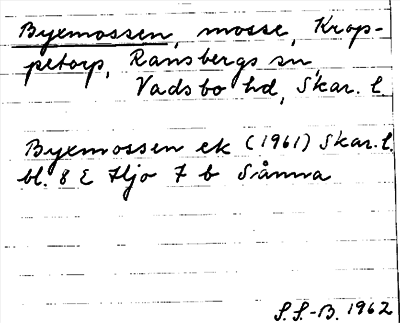 Byxmossen, mosse, Krop-
petorp, Ransbergs sn
Vadsbo hd, Skar. l.
Byxmossen ek (1961) Skar. l.
bl. 8 E Hjo 7 b Sånna
S.S.-B. 1962